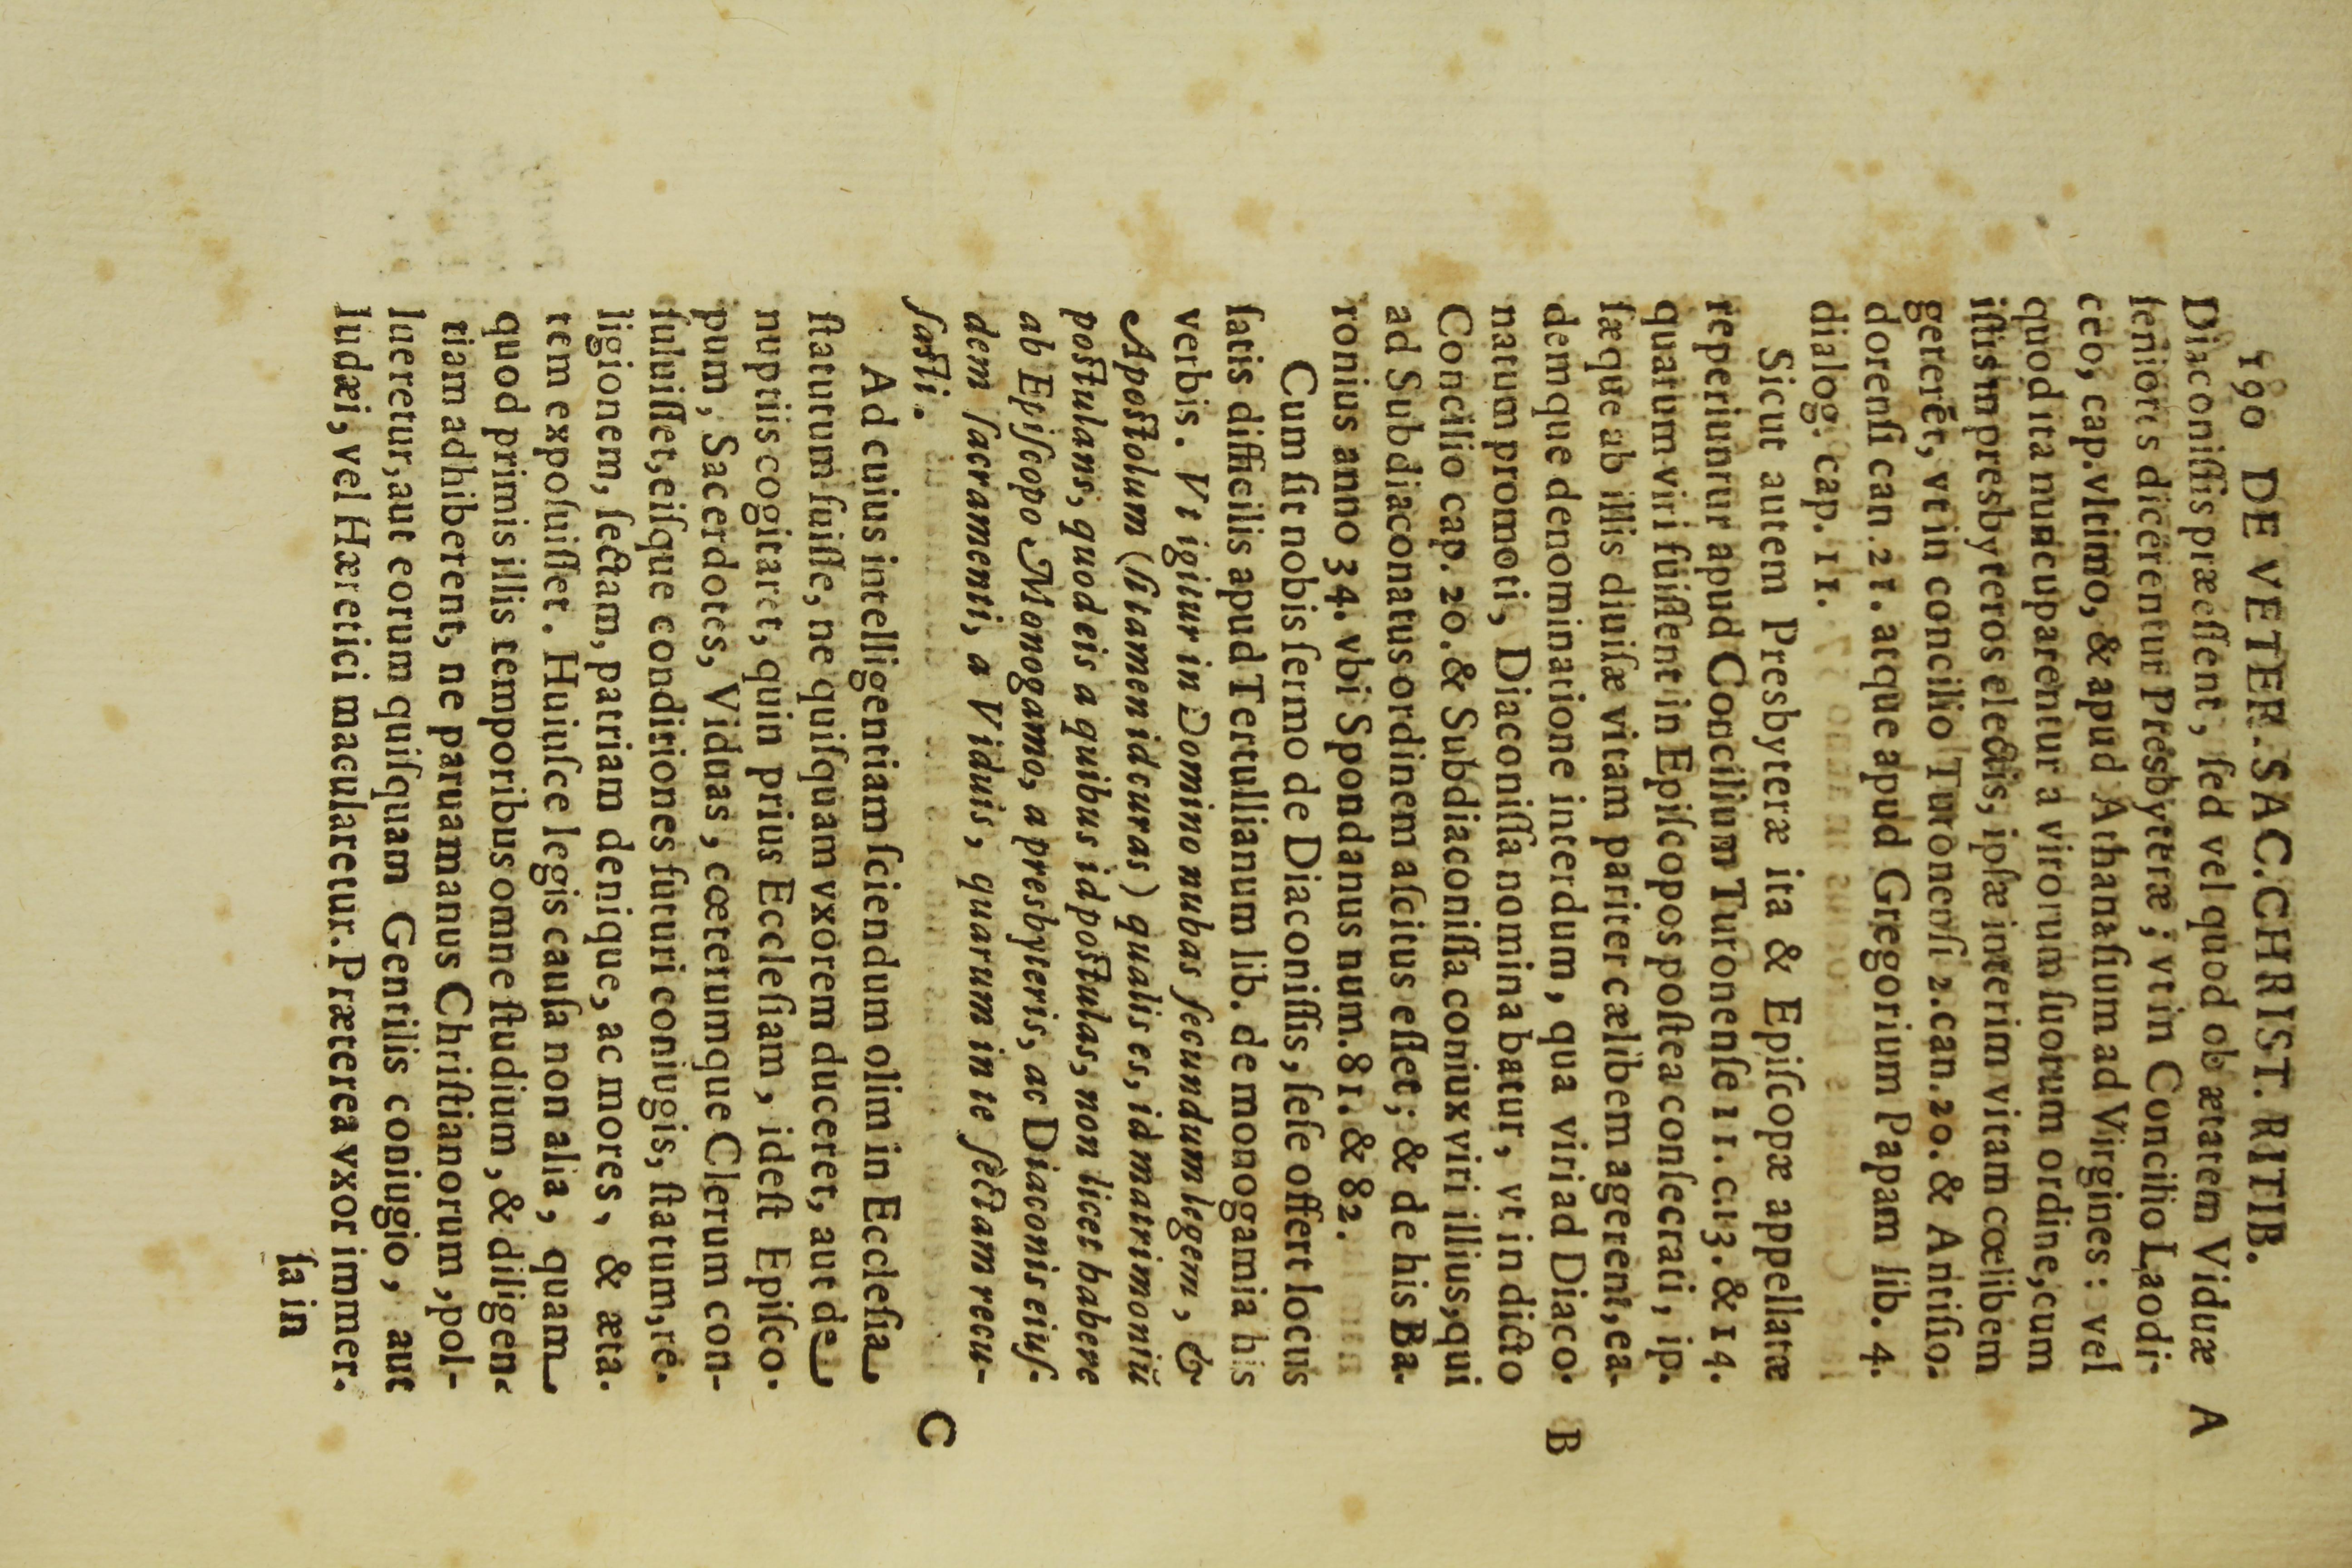 190 DE VETER. SAC. CHRIST. RITIB.
Diaconiſſis præeſſent, ſed vel quod ob ætatem Viduæ A
ſeniores dicerentur Presbyteræ; vt in Concilio Laodi-
ceo, cap. vltimo, & apud Athanaſium ad Virgines: vel
quod ita nuncuparentur a virorum ſuorum ordine, cum
iſtis in presbyteros electis, ipſæ interim vitam cœlibem
gererēt, vt in concilio Turonenſi 2. can. 20. & Antiſio-
dorenſi can. 21. atque apud Gregorium Papam lib. 4.
dialog. cap. 11.
Sicut autem Presbyteræ ita & Epiſcopæ appellatæ
reperiuntur apud Concilium Turonenſe 11. c. 13. & 14.
quarum viri fuiſſent in Epiſcopos poſtea conſecrati, ip-
ſæque ab illis diuiſæ vitam pariter cælibem agerent, ea-
demque denominatione interdum, qua viri ad Diaco- B
natum promoti, Diaconiſſa nominabatur, vt in dicto
Concilio cap. 20. & Subdiaconiſſa coniux viri illius, qui
ad Subdiaconatus ordinem aſcitus eſſet; & de his Ba-
ronius anno 34. vbi Spondanus num. 81. & 82.
Cum ſit nobis ſermo de Diaconiſſis, ſeſe offert locus
ſatis difficilis apud Tertullianum lib. de monogamia his
verbis. Vt igitur in Domino nubas ſecundum legem, &
Apoſtolum (ſi tamen id curas) qualis es, id matrimoniũ
poſtulans, quod eis a quibus id poſtulas, non licet habere
ab Epiſcopo Monogamo, a presbyteris, ac Diaconis eiuſ-
dem ſacramenti, a Viduis, quarum in te ſectam recu-
ſaſti. C
Ad cuius intelligentiam ſciendum olim in Eccleſia
ſtatutum fuiſſe, ne quiſquam vxorem duceret, aut de
nuptiis cogitaret, quin prius Eccleſiam, ideſt Epiſco-
pum, Sacerdotes, Viduas, cœterumque Clerum con-
ſuluiſſet, eiſque conditiones futuri coniugis, ſtatum, re-
ligionem, ſectam, patriam denique, ac mores, & æta-
tem expoſuiſſet. Huiuſce legis cauſa non alia, quam
quod primis illis temporibus omne ſtudium, & diligen-
tiam adhiberent, ne parua manus Chriſtianorum, pol-
lueretur, aut eorum quiſquam Gentilis coniugio, aut
Iudæi, vel Hæretici macularetur. Præterea vxor immer-
ſa in